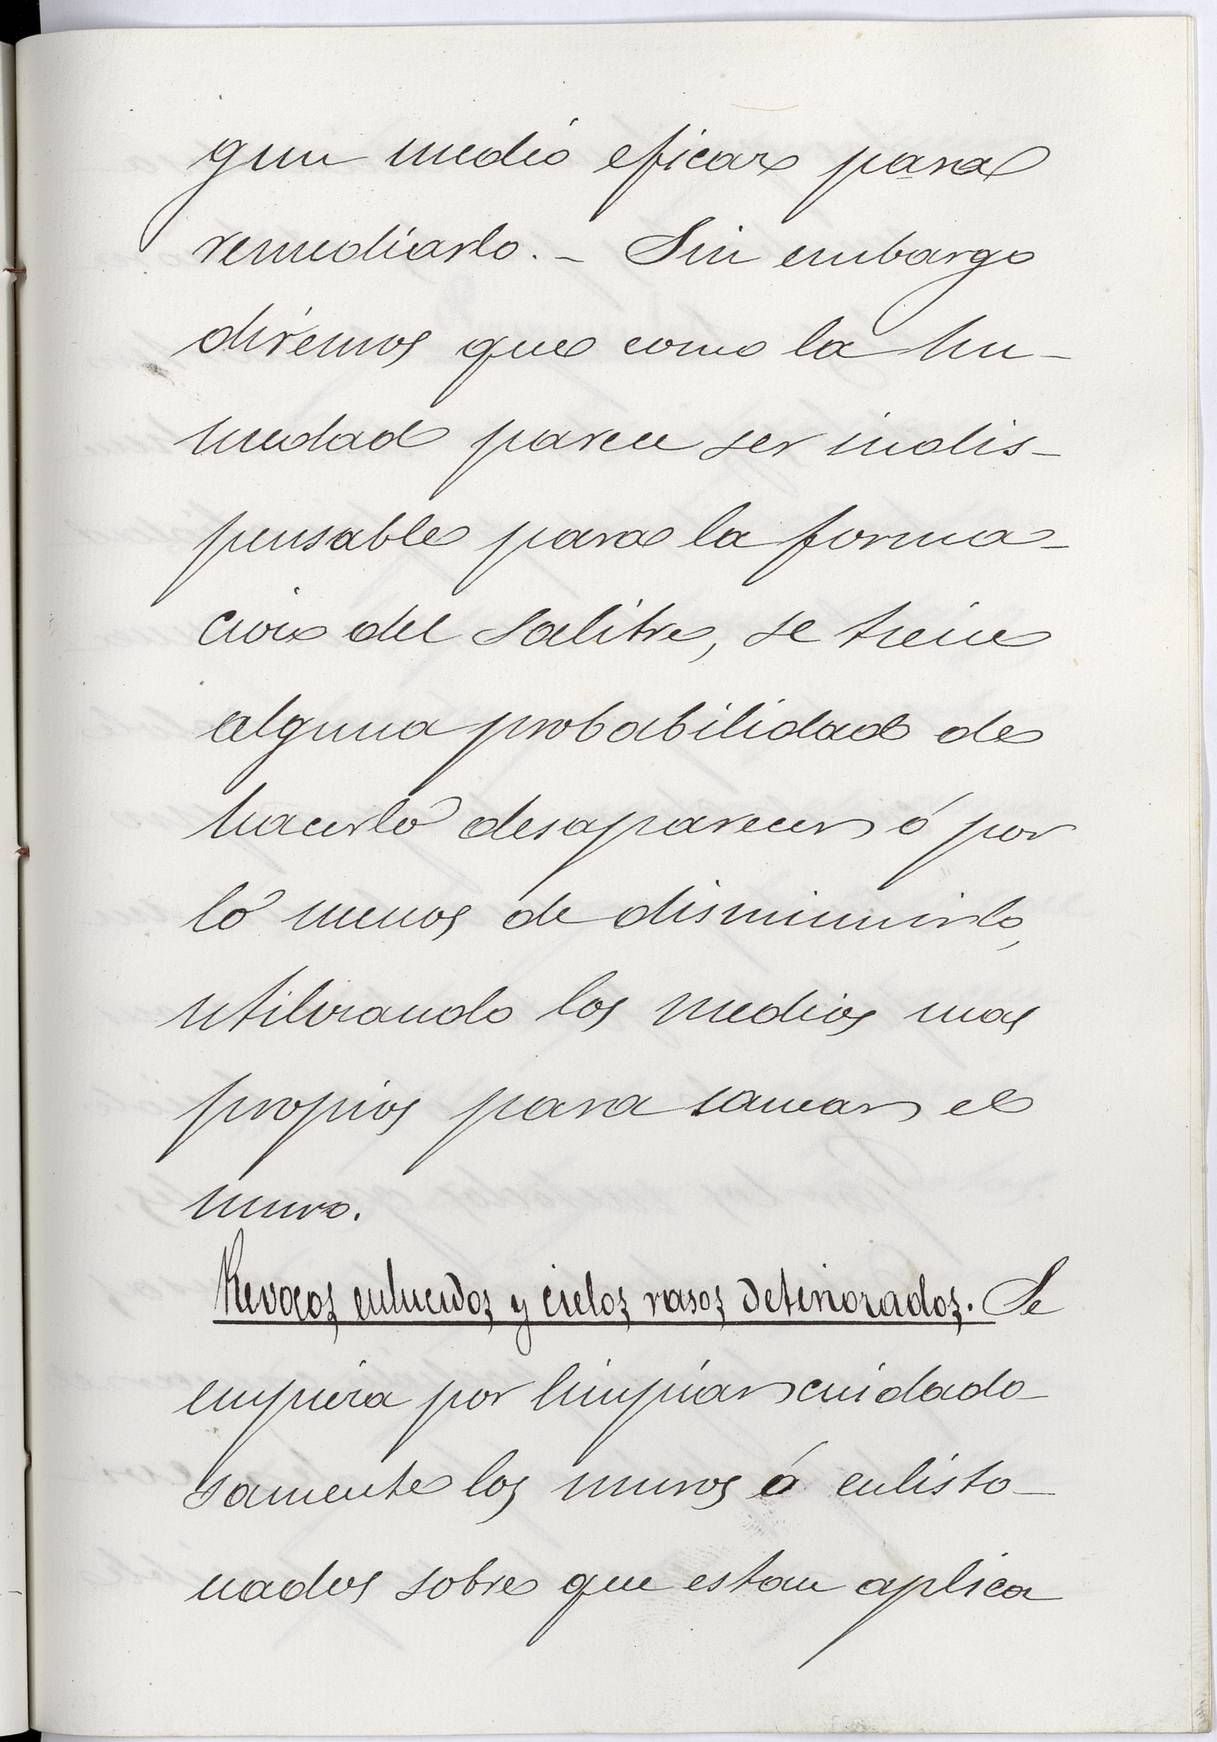 gun medio eficaz para
remediarlo. - Sin embargo
diremos que como la hu-
medad parece ser indis-
pensable para la forma-
cion del salitre, se tiene
alguna probabilidad de
hacerlo desaparecer ó por
lo menos de disminuirlo,
utilizando los medios mas
propios para sanear el
muro.
Revocos, enlucidos y cielos rasos deteriorados. Se
empieza por limpiar cuidado-
samente los muros ó enlisto-
nados sobre que estan aplica